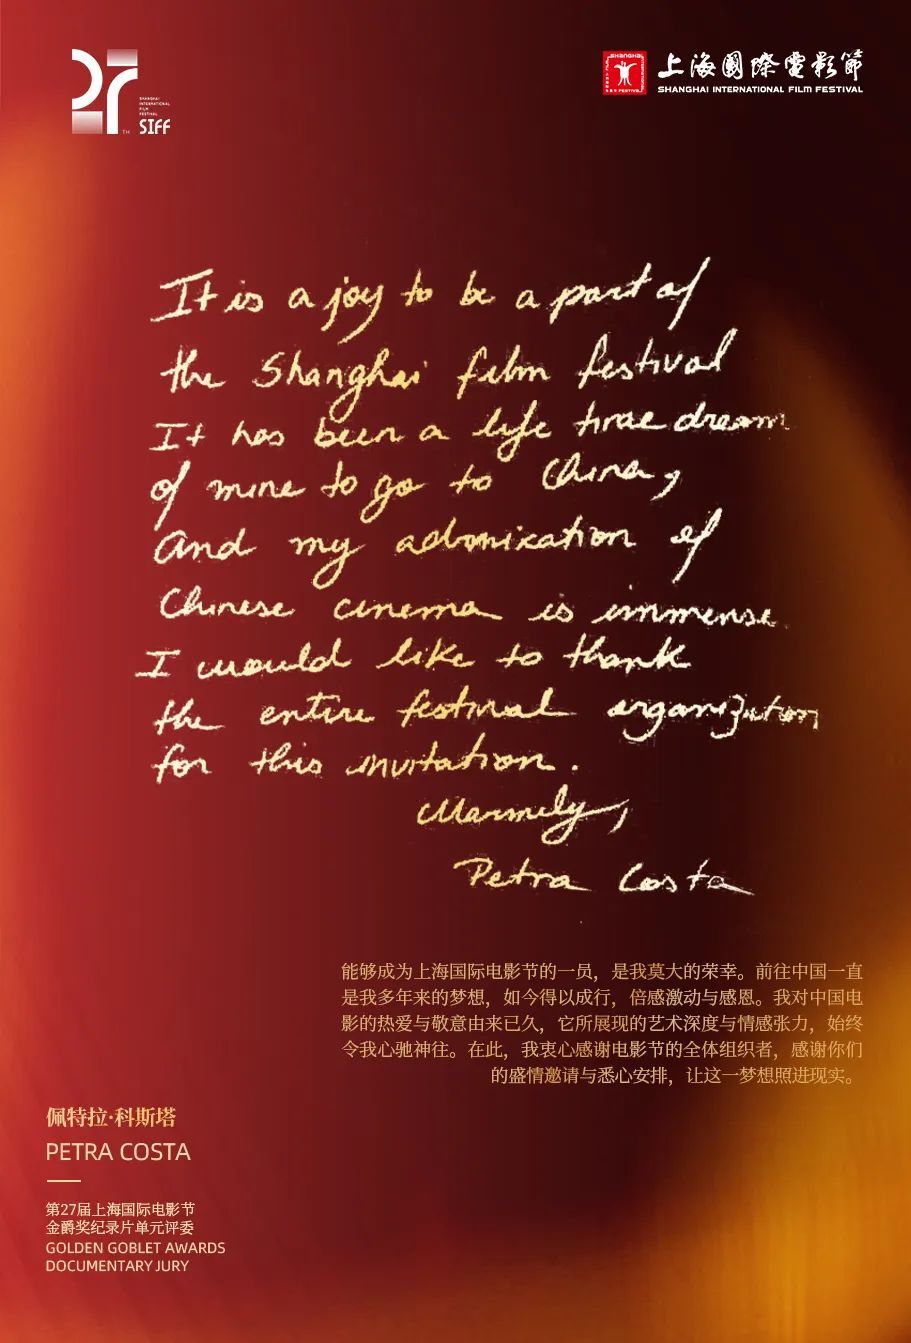 27
TM
SHANGHAI
INTERNATIONAL
FILM
FESTIVAL
SIFF
上海國際電影節
SHANGHAI INTERNATIONAL FILM FESTIVAL
It is a joy to be a part of
the Shanghai film festival
It has been a life time dream
of mine to go to China,
And my admiration of
Chinese cinema is immense
I would like to thank
the entire festival organization
for this invitation.
Warmely,
Petra Costa
能够成为上海国际电影节的一员，是我莫大的荣幸。前往中国一直
是我多年来的梦想，如今得以成行，倍感激动与感恩。我对中国电
影的热爱与敬意由来已久，它所展现的艺术深度与情感张力，始终
令我心驰神往。在此，我衷心感谢电影节的全体组织者，感谢你们
的盛情邀请与悉心安排，让这一梦想照进现实。
佩特拉·科斯塔
PETRA COSTA
第27届上海国际电影节
金爵奖纪录片单元评委
GOLDEN GOBLET AWARDS
DOCUMENTARY JURY